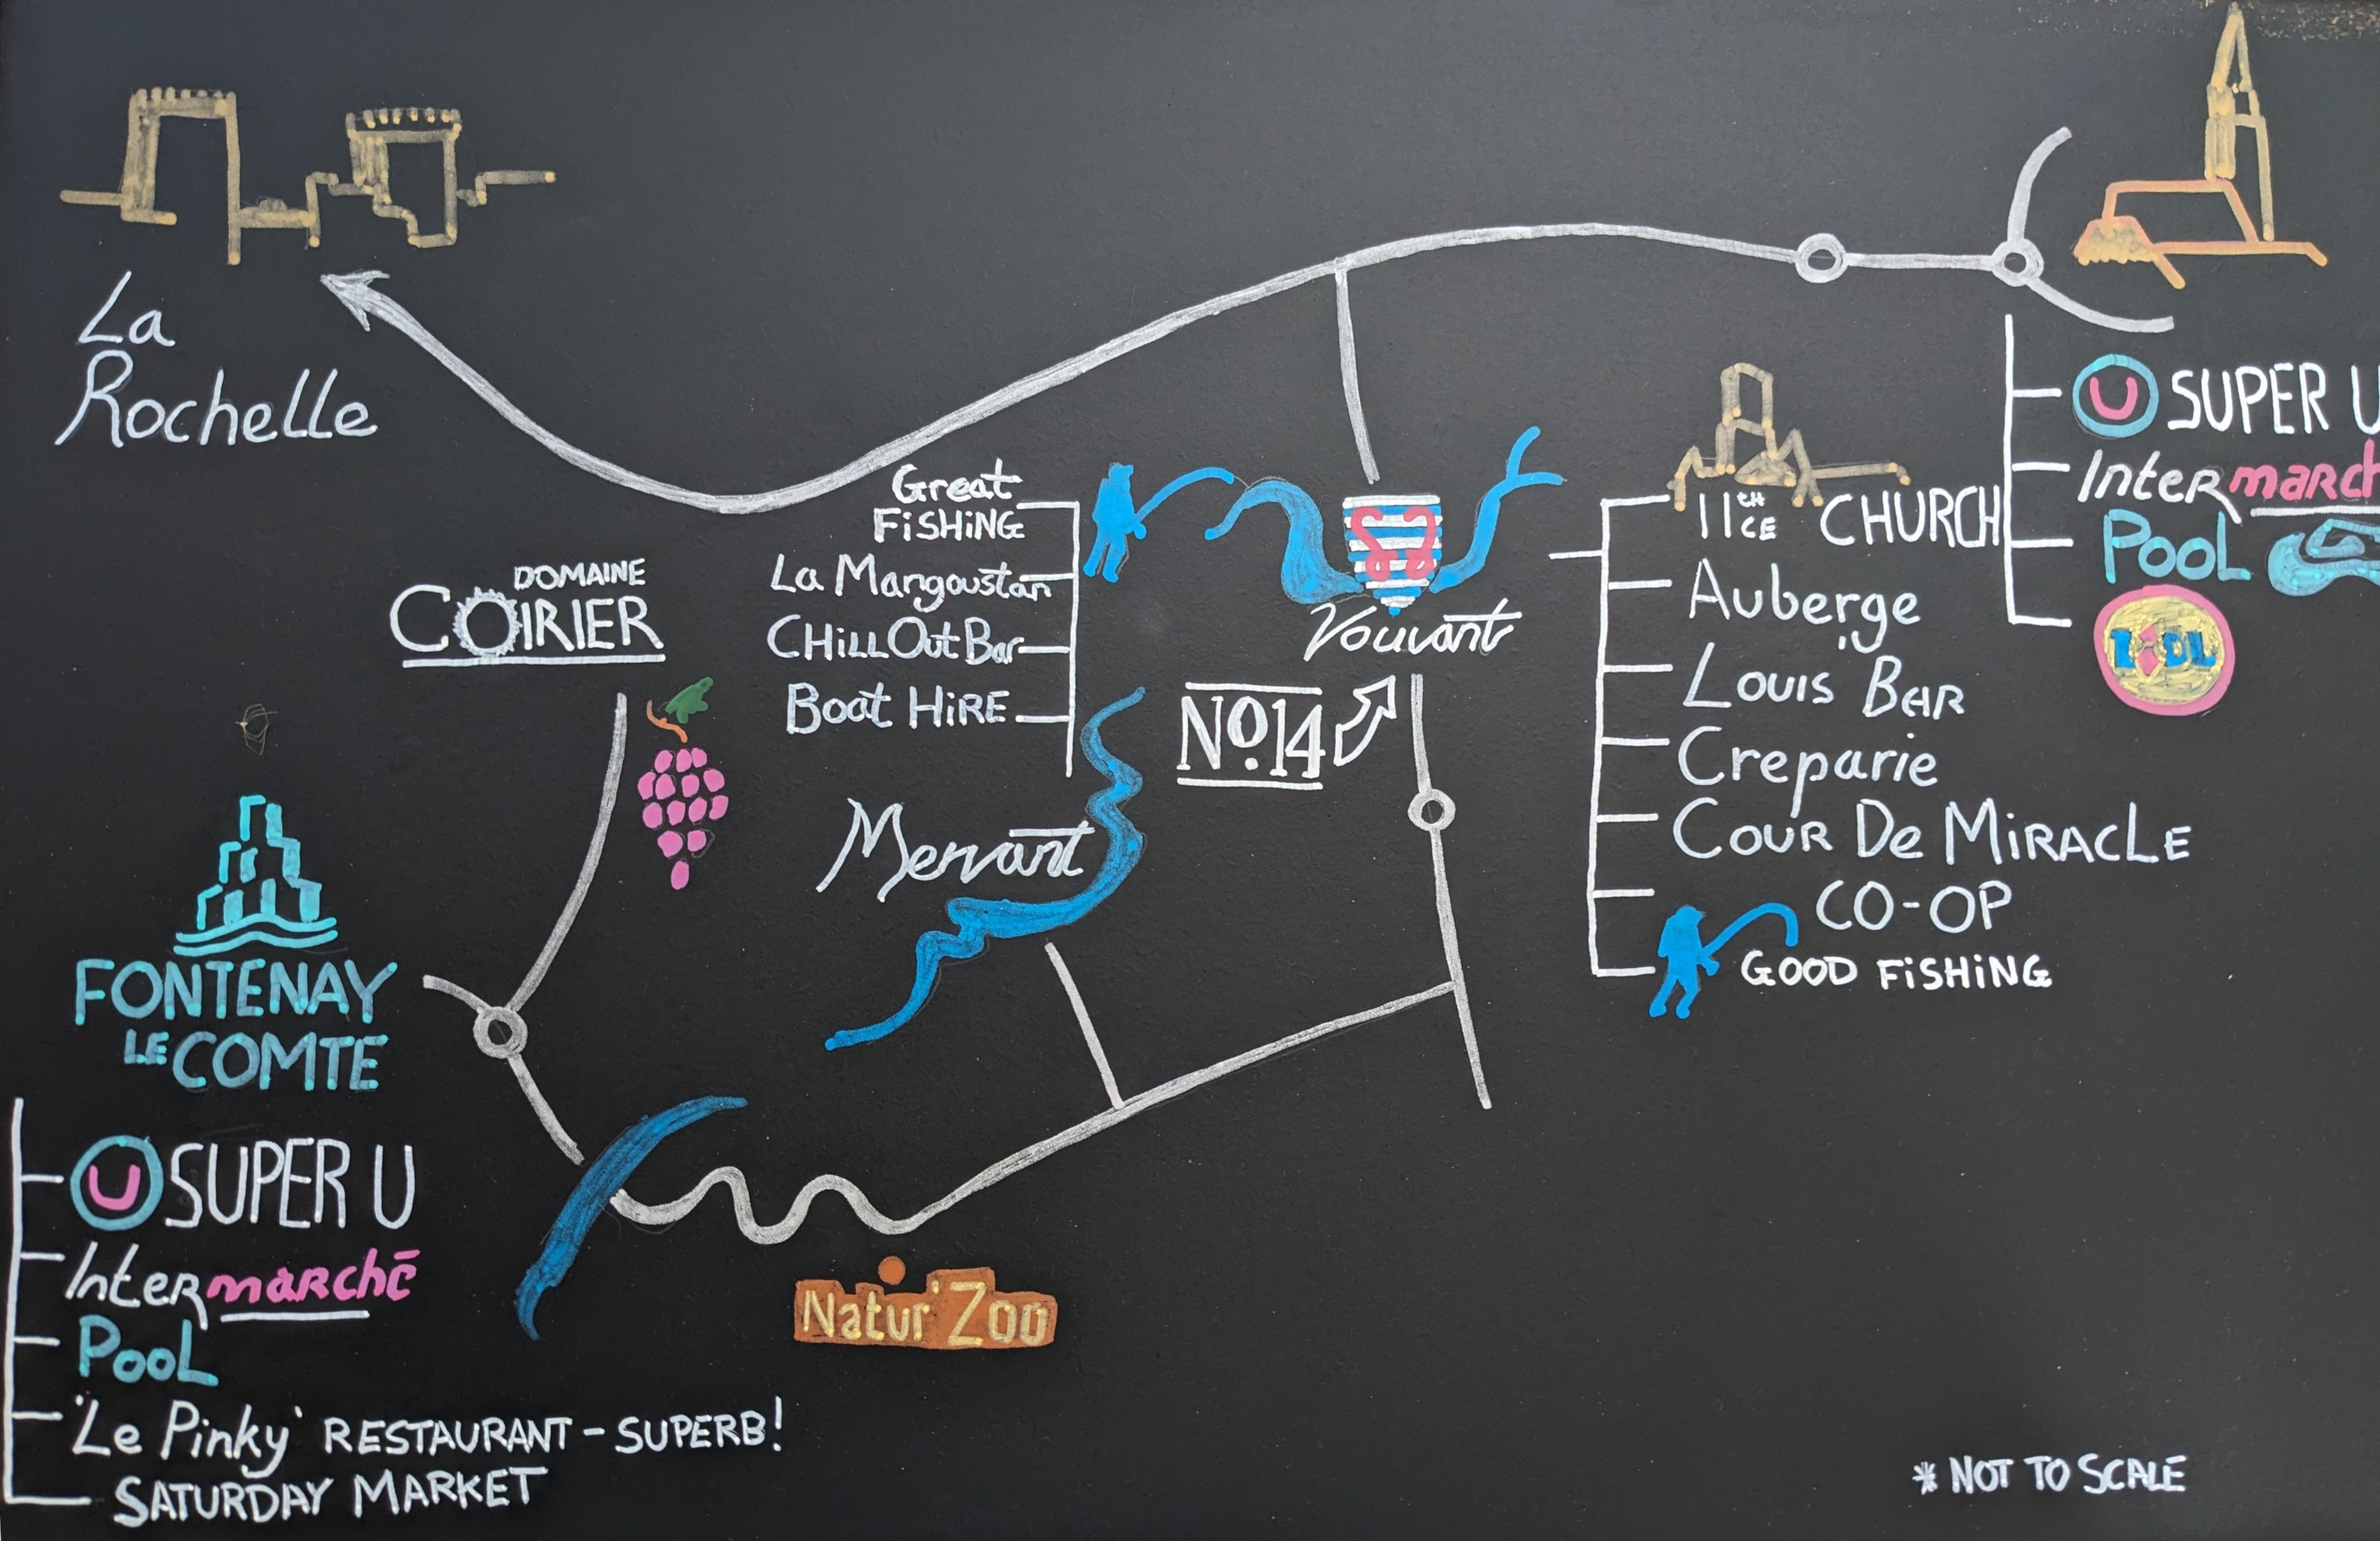 La
Rochelle
U SUPER U
Intermarch
POOL
LIDL
11CH CE CHURCH
Auberge
Louis' Bar
Creparie
COUR De MiRACLE
CO-OP
GOOD FiSHiNG
Great
FiSHiNG
La Mangoustan
CHiLL Out Bar
Boat HiRE
Vouvant
No.14
Mervant
DOMAINE
COIRIER
FONTENAY
LE COMTE
U SUPER U
Intermarché
POOL
'Le Pinky' RESTAURANT - SUPERB!
SATURDAY MARKET
Natur'Zoo
* NOT TO SCALE